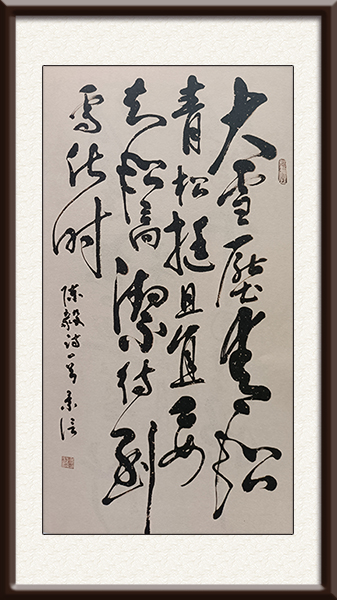 大雪壓青松
青松挺且直要
知松高潔待到
雪化时
陈毅诗一首